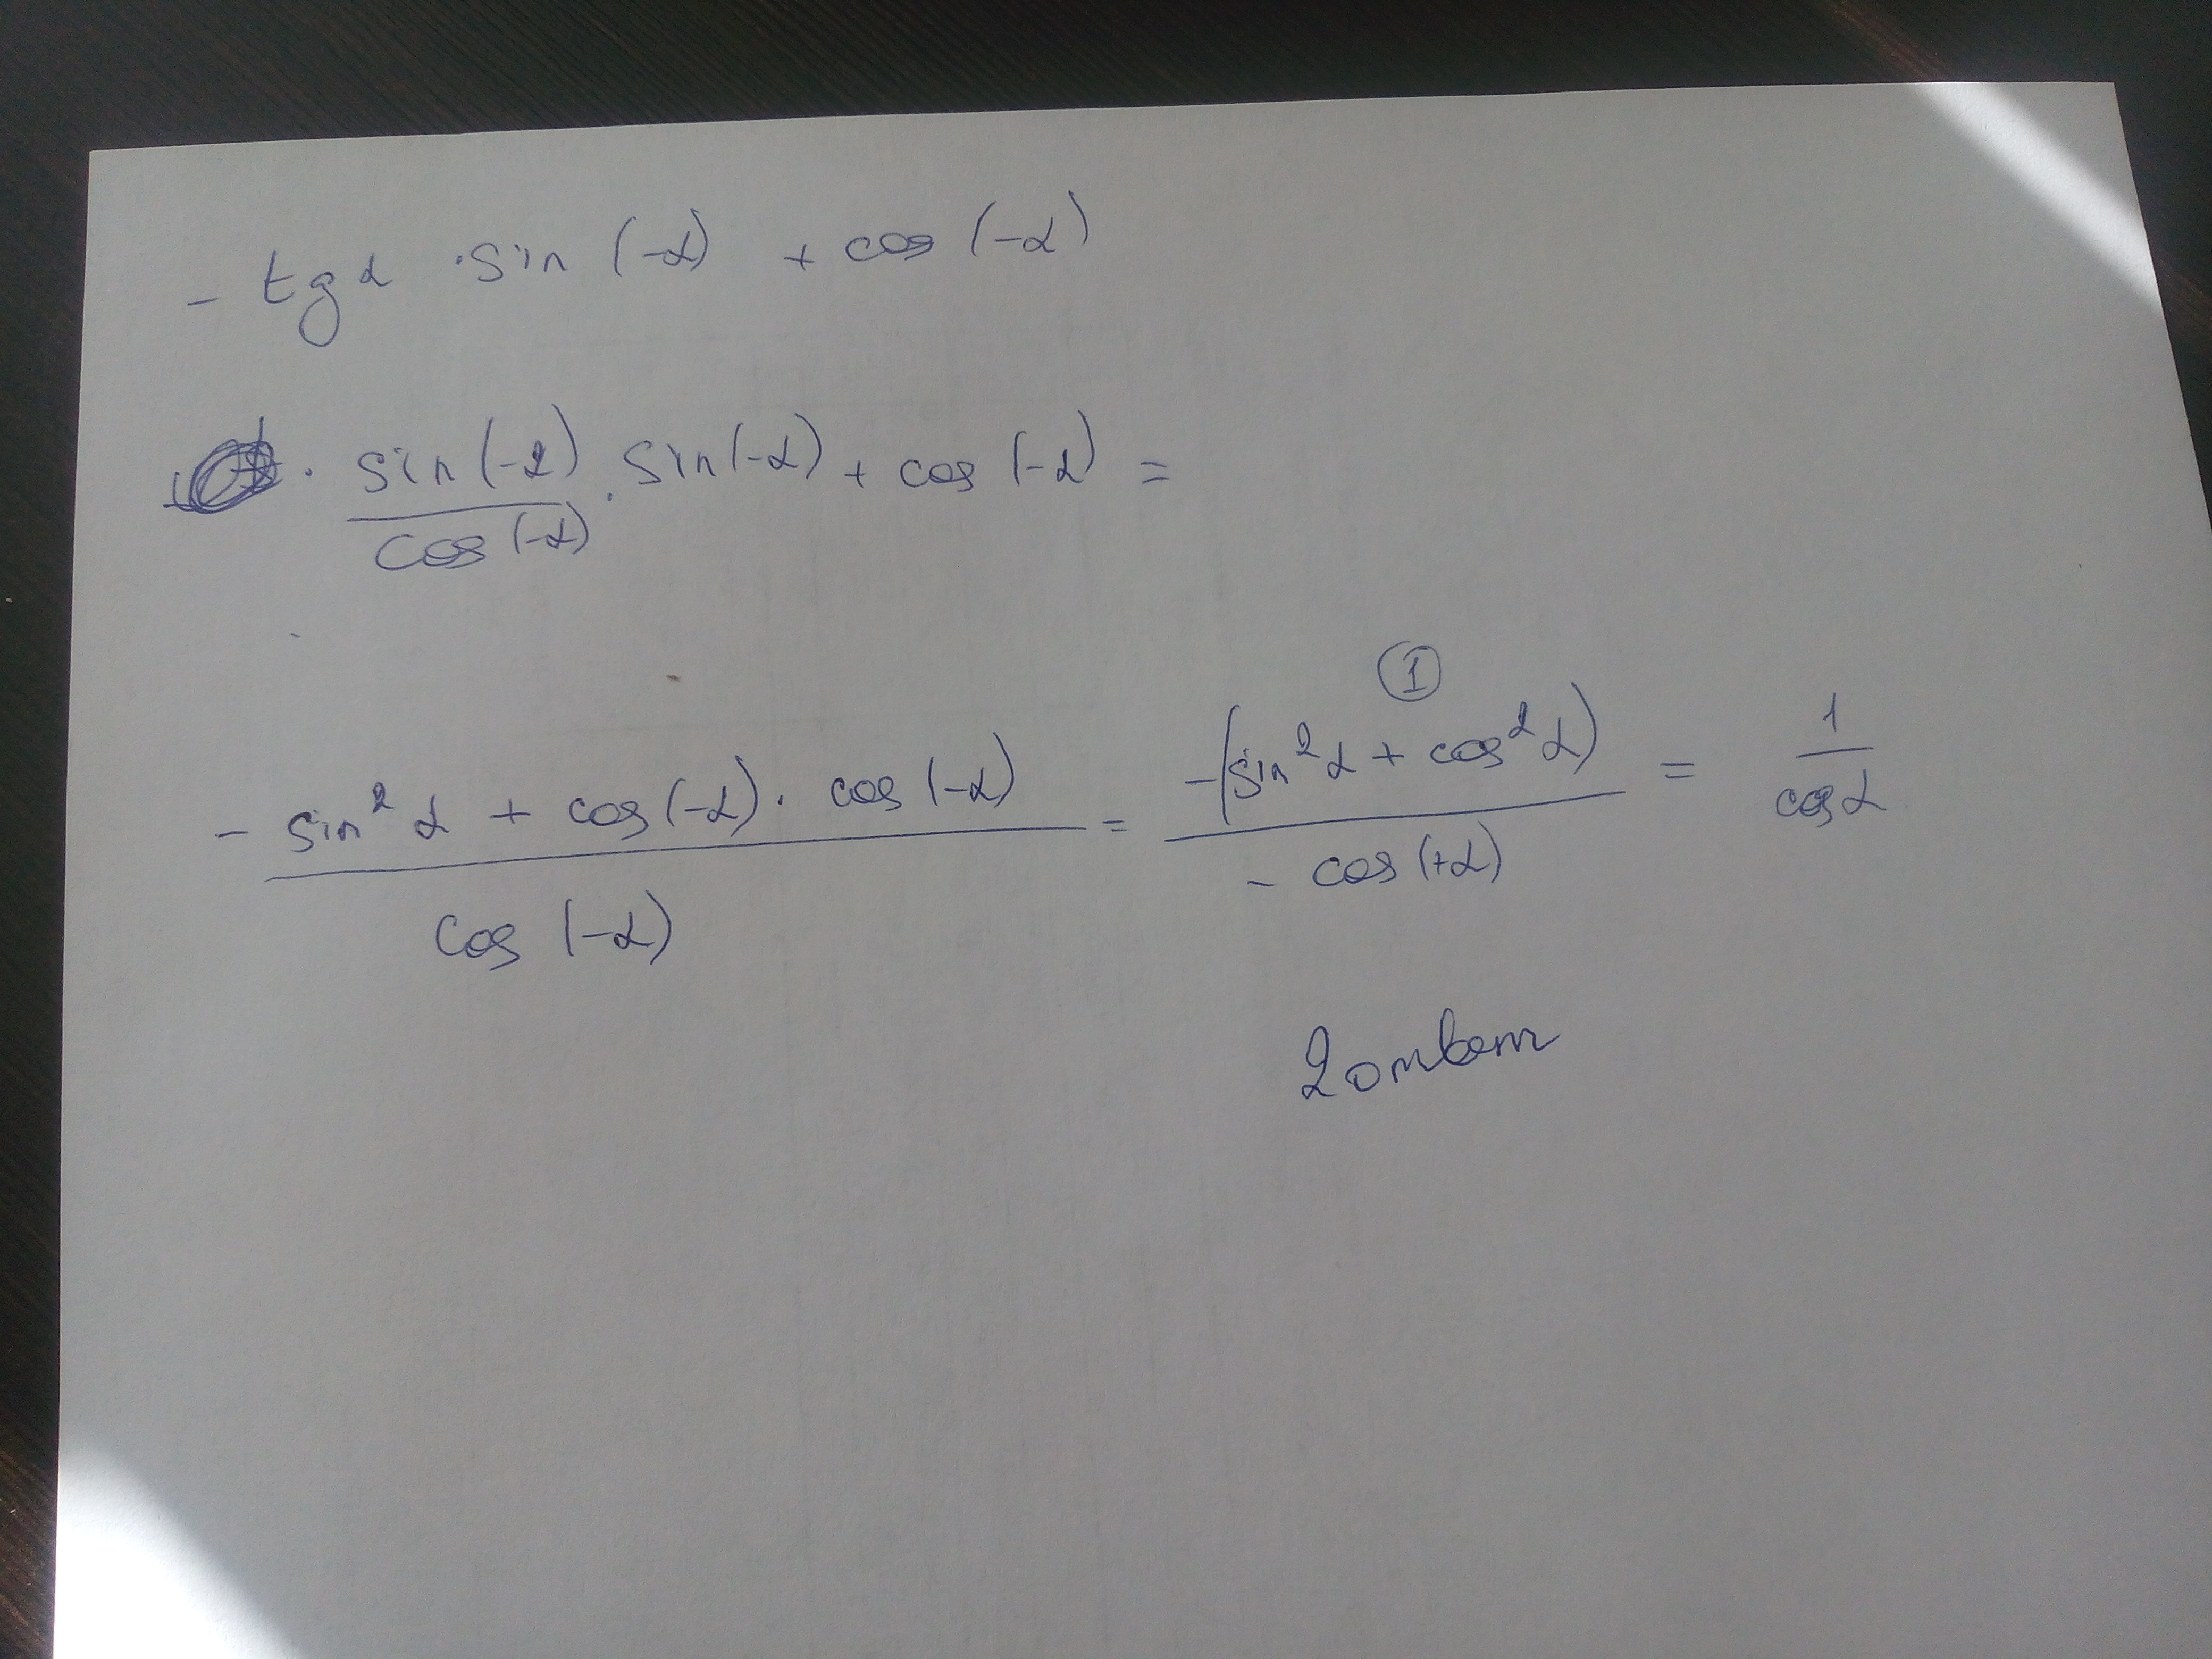 - tg α · sin (-α) + cos (-α)
· sin (-α) / cos (-α) · sin (-α) + cos (-α) =
①
- sin² α + cos (-α) · cos (-α) / cos (-α) = -(sin² α + cos² α) / - cos (+α) = 1 / cos α
2 ответ